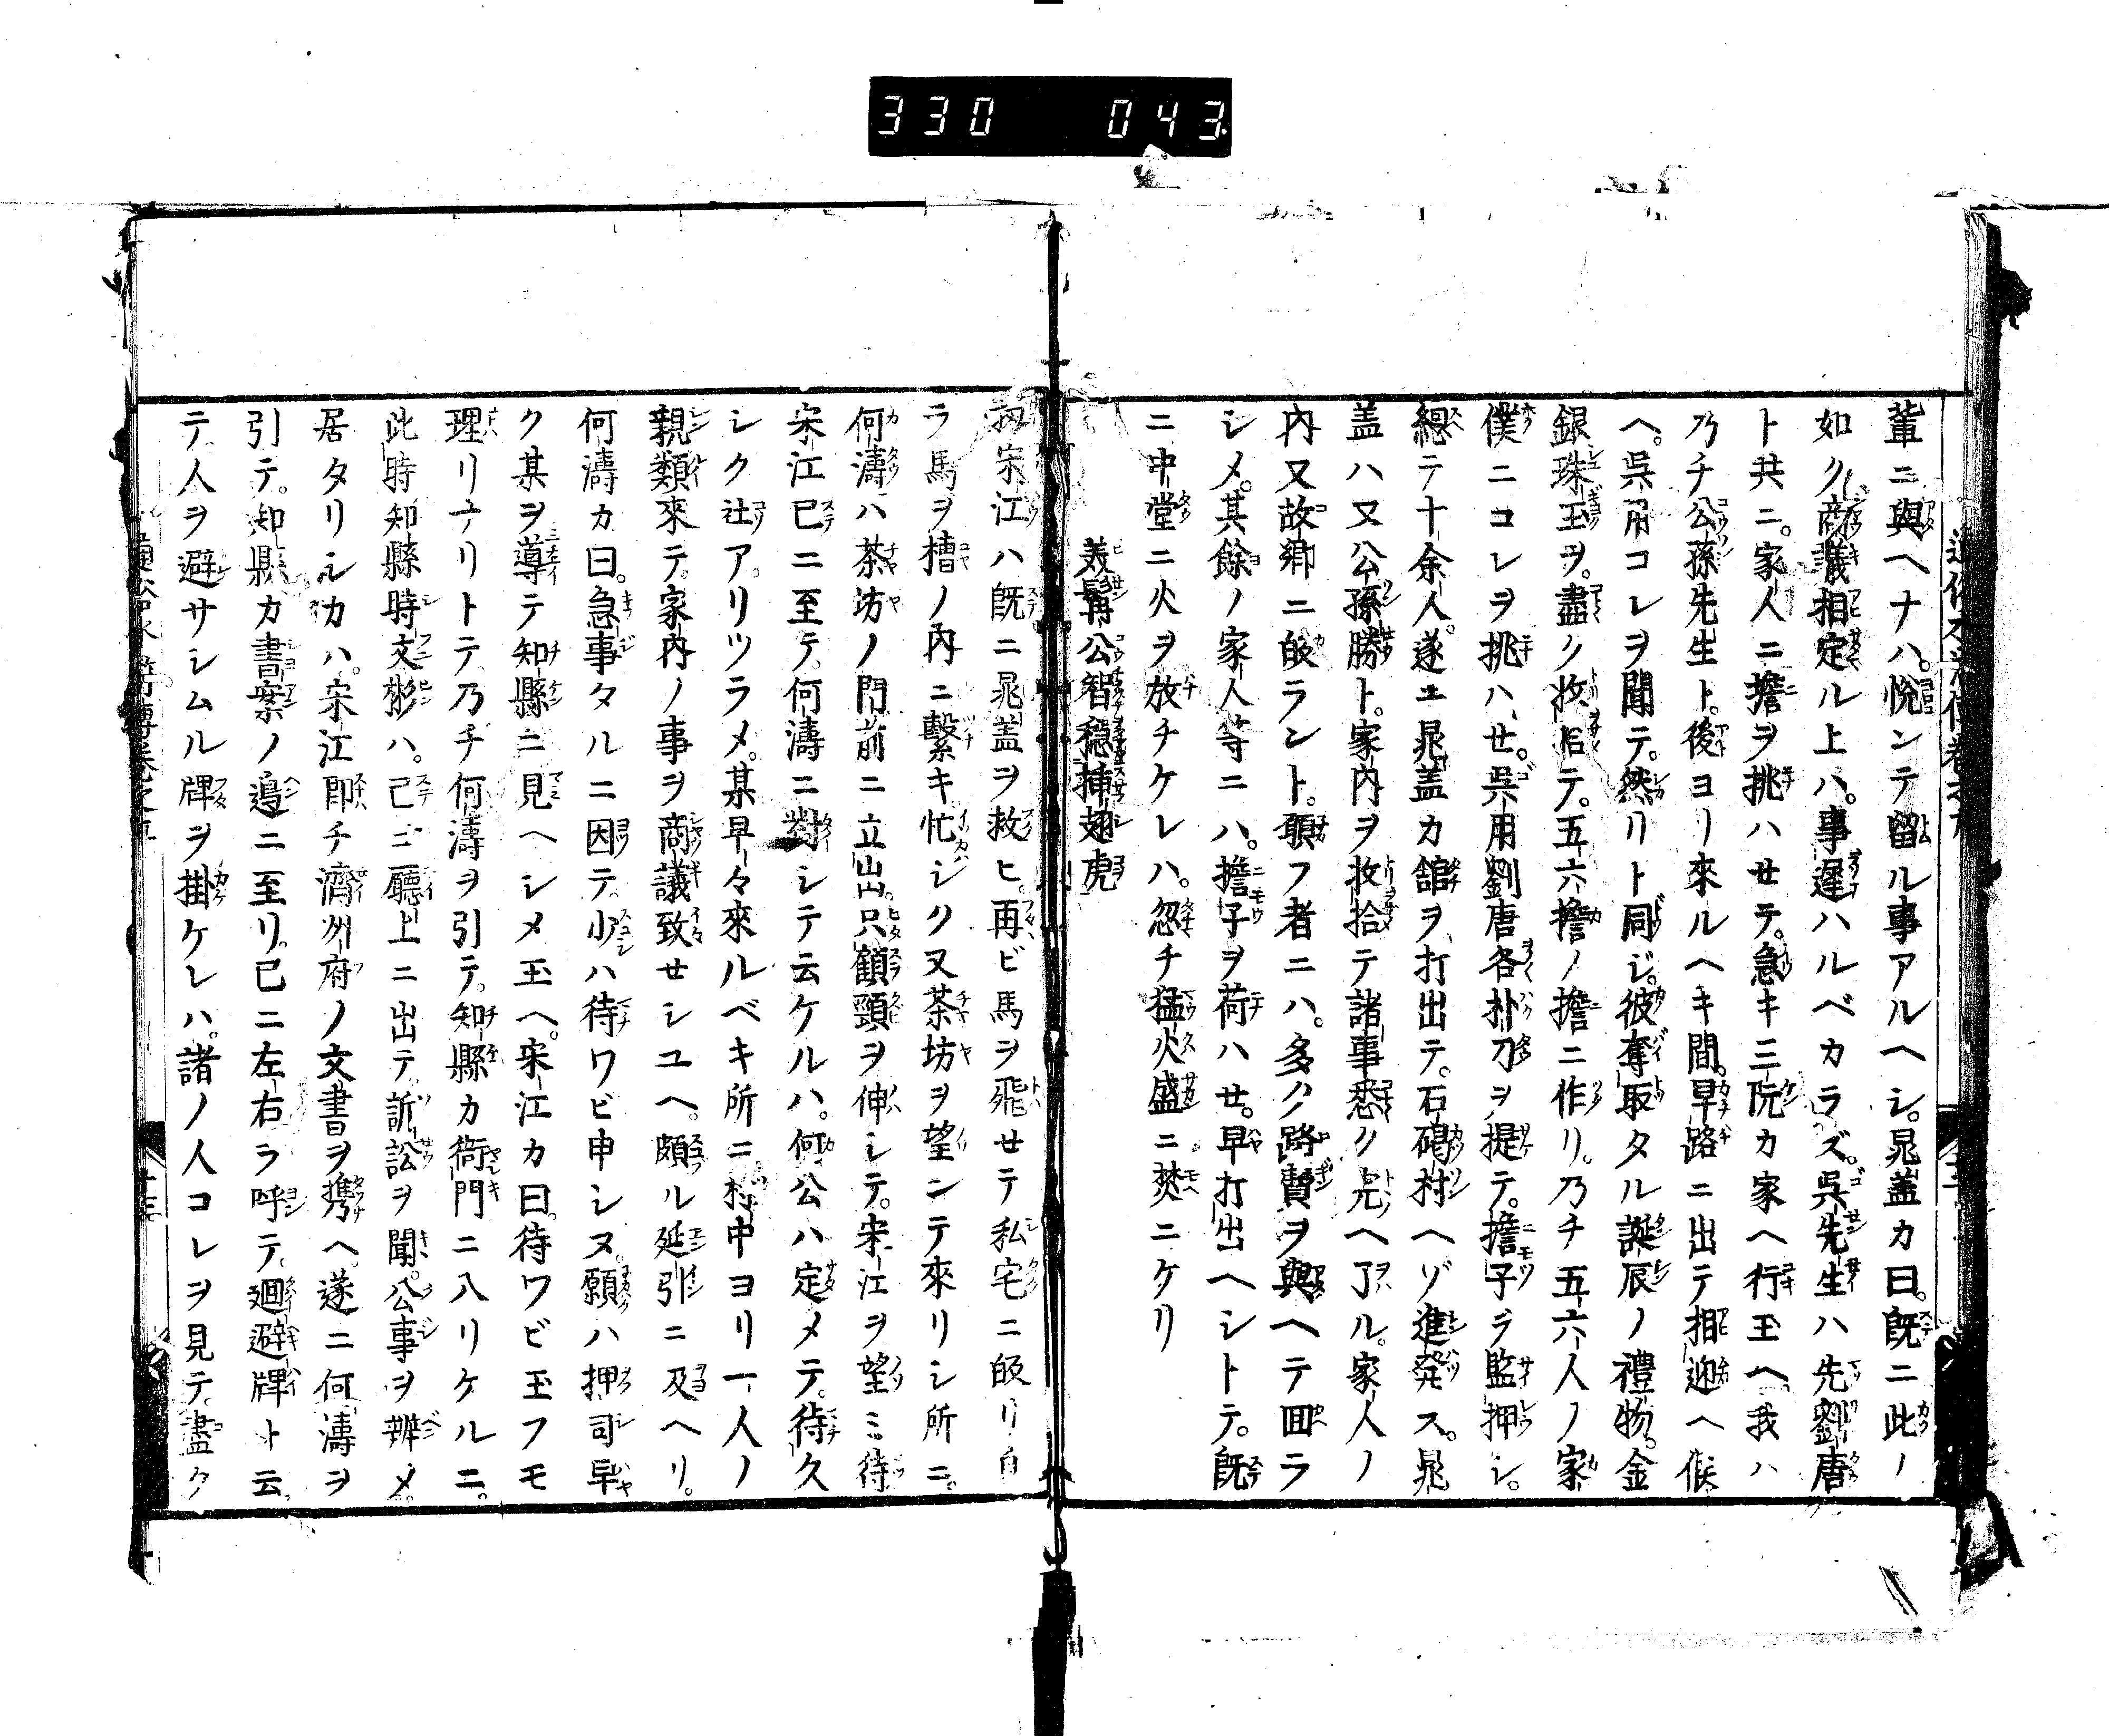 330 043
輩ニ與ヘナハ。悅ンテ留ル事アルヘシ。晁盖カ曰。旣ニ此ノ
如ク商議相定ル上ハ。事遲ハルベカラズ。呉先生ハ先劉唐
ト共ニ。家人ニ擔ヲ挑ハセテ。急キ三阮カ家ヘ行玉ヘ。我ハ
乃チ公孫先生ト。後ヨリ來ルヘキ間。早路ニ出テ相迎ヘ候
ヘ。呉用コレヲ聞テ。然リト同ジ。彼奪取タル誕辰ノ禮物。金
銀珠玉ヲ。盡ク收拾テ。五六擔ノ擔ニ作リ。乃チ五六人ノ家
僕ニコレヲ挑ハセ。呉用劉唐各朴刀ヲ提テ。擔子ヲ監押シ。
總テ十余人。遂ニ晁盖カ舘ヲ打出テ。石碣村ヘゾ進発ス。晁
盖ハ又公孫勝ト。家内ヲ收拾テ諸事悉ク完ヘ了ル。家人ノ
内又故郷ニ皈ラント。願フ者ニハ。多ク路費ヲ與ヘテ囬ラ
シメ。其餘ノ家人等ニハ。擔子ヲ荷ハセ。早打出ヘシトテ。旣
ニ中堂ニ火ヲ放チケレハ。忽チ猛火盛ニ焚ニケリ
美髯公智穩挿翅虎
扨宋江ハ旣ニ晁盖ヲ救ヒ。再ビ馬ヲ飛セテ私宅ニ皈リ自
ラ馬ヲ槽ノ内ニ繫キ。忙シク又茶坊ヲ望ンテ來リシ所ニ。
何濤ハ茶坊ノ門前ニ立出。只顧頸ヲ伸シテ。宋江ヲ望ミ待
宋江已ニ至テ。何濤ニ對シテ云ケルハ。何公ハ定メテ。待久
シク社アリツラメ。某早々來ルベキ所ニ。村中ヨリ一人ノ
親類來テ。家内ノ事ヲ商議致セシユヘ。頗ル延引ニ及ヘリ。
何濤カ曰。急事タルニ因テ。少ハ待ワビ申シヌ。願ハ押司早
ク某ヲ導テ知縣ニ見ヘシメ玉ヘ。宋江カ曰。待ワビ玉フモ
理リナリトテ。乃チ何濤ヲ引テ。知縣カ衙門ニ入リケルニ。
此時知縣時文彬ハ。已ニ廳上ニ出テ。訴訟ヲ聞。公事ヲ辨メ。
居タリシカハ。宋江卽チ濟州府ノ文書ヲ携ヘ。遂ニ何濤ヲ
引テ。知縣カ書案ノ邉ニ至リ。已ニ左右ヲ呼テ。廻避牌ト云
テ。人ヲ避サシムル牌ヲ掛ケレハ。諸ノ人コレヲ見テ。盡ク